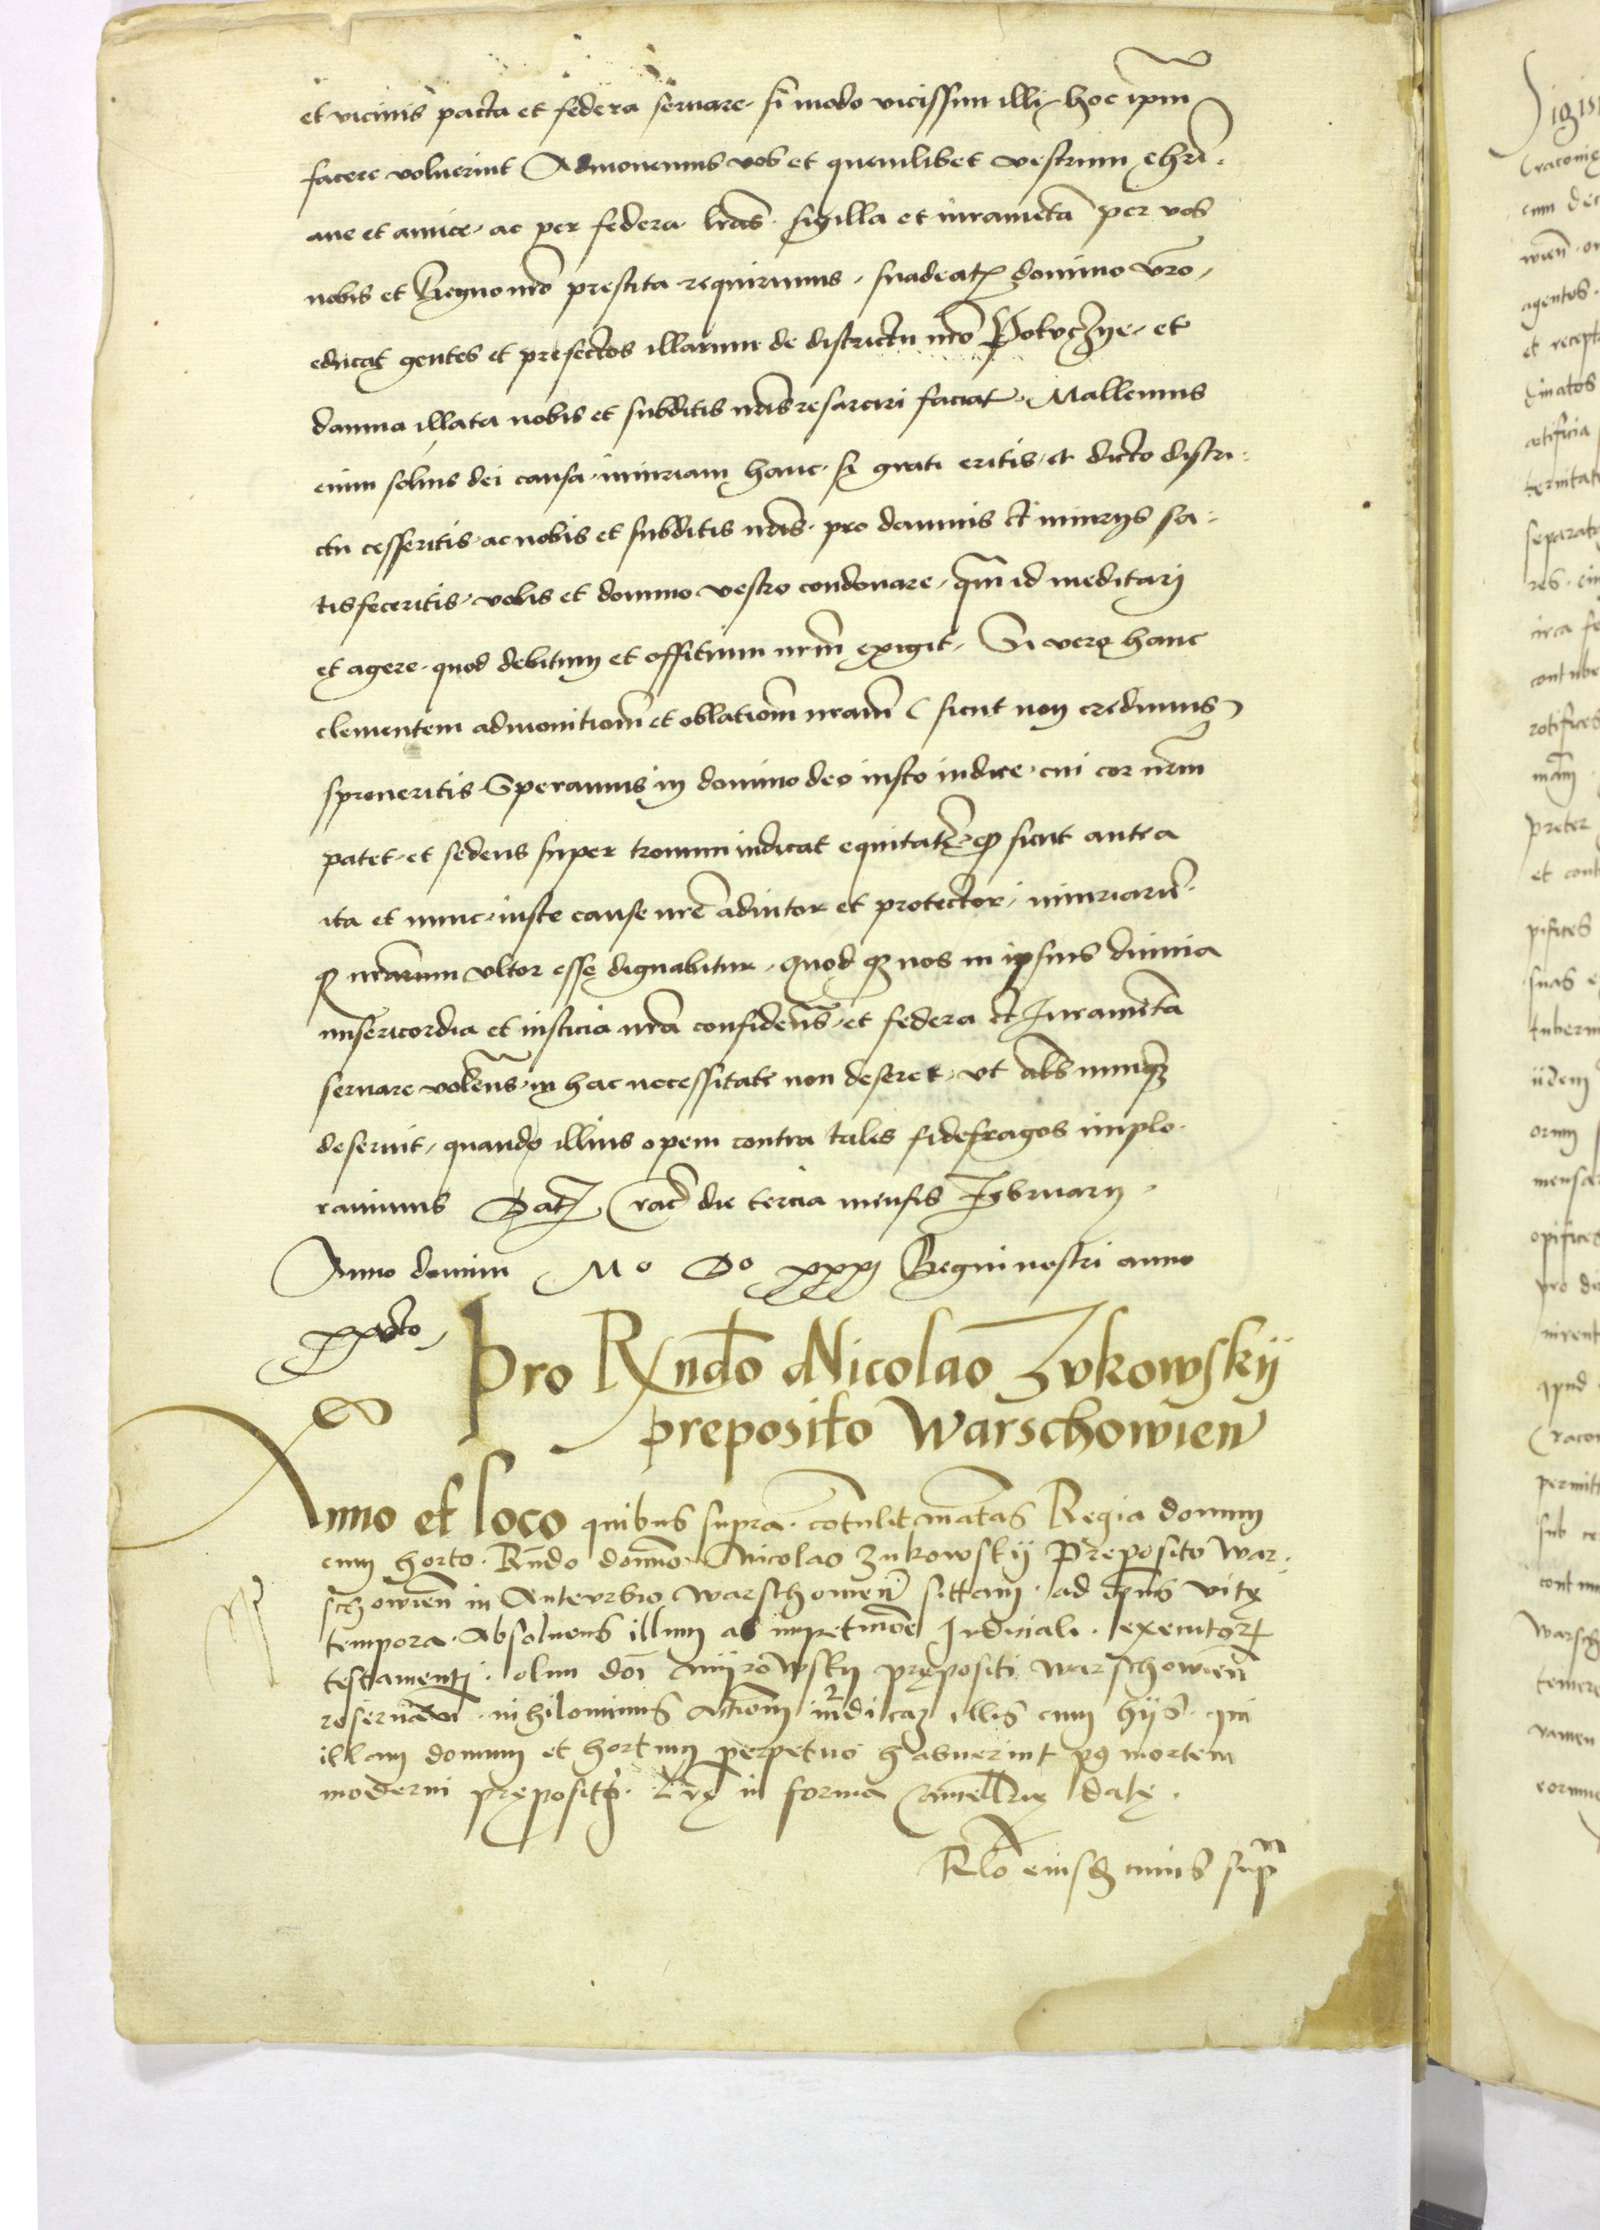 et vicinis pacta et federa seruare, si modo vicissim illi, hoc ipm̄
facere voluerint Admonemus vos et quemlibet vestrum, chri-
ane et amice, ac per federa lrās. sigilla et iuramēta per vos
nobis et Regno nrō prestita requirimus, suadeatꝭ domino vrō,
educat gentes et prefectos illarum de districtu nrō Potvczÿe, et
damna illata nobis et subditis nrīs resarciri faciat. Mallemus
enim solius dei causa, iniuriam hanc, si grati eritis, et dicto distri-
ctu cesseritis, ac nobis et subditis nrīs. pro damnis et iniurijs sa-
tisfeceritis, vobis et domino vestro condonare, qm̄ id meditarj
et agere, quod debitum et offitium nrm̄ exigit, Si vero hanc
clementem admonitionē et oblationē nram̄ (sicut non credimus)
spreueritis Speramus in domino deo iusto iudice, cui cor nrm̄
patet, et sedens super tronum iudicat equitatē, qꝫ sicut antea
ita et nunc, iuste cause nrē adiutor et protector, iniuriarū
qꝫ nrārum vltor esse dignabitur, Quod qꝫ nos in ipsius diuina
misericordia et iusticia nrā confidentes, et federa et Iuramēta
seruare volentes, in hac necessitate non deseret, vt als nunqꝫ
deseruit, quando illius opem contra tales fidefragos implo-
rauimus Datꝭ Crac̄ die tercia mensis Februarij.
Anno domini Mo Do xxxj Regni nostri anno
xxvto,
Pro Rn̄do Nicolao Zvkowskÿ
preposito Warschowien̄
Anno et loco quibus supra. cōtulit maiestas Regia domum
cum horto. Rn̄do domno Nicolao Zukowskÿ Preposito War-
schowien̄ in Antevrbio Warschowien̄ sittam. ad ipius vite
tempora. Absoluens illum ab impetitiōe Judiciali. executorꝭ
testamentj. olim dnī Mÿrowskÿ prepositi Warschowien̄
reseruavit. nihilominus actionē iuridicaꝫ illis cum hÿs. qui
illam domum et hortum perpetuo habuerint pꝰ mortem
moderni prepositi. Lrē in forma Cancellrie date.
Rlo eiusdꝫ cuius supͣ